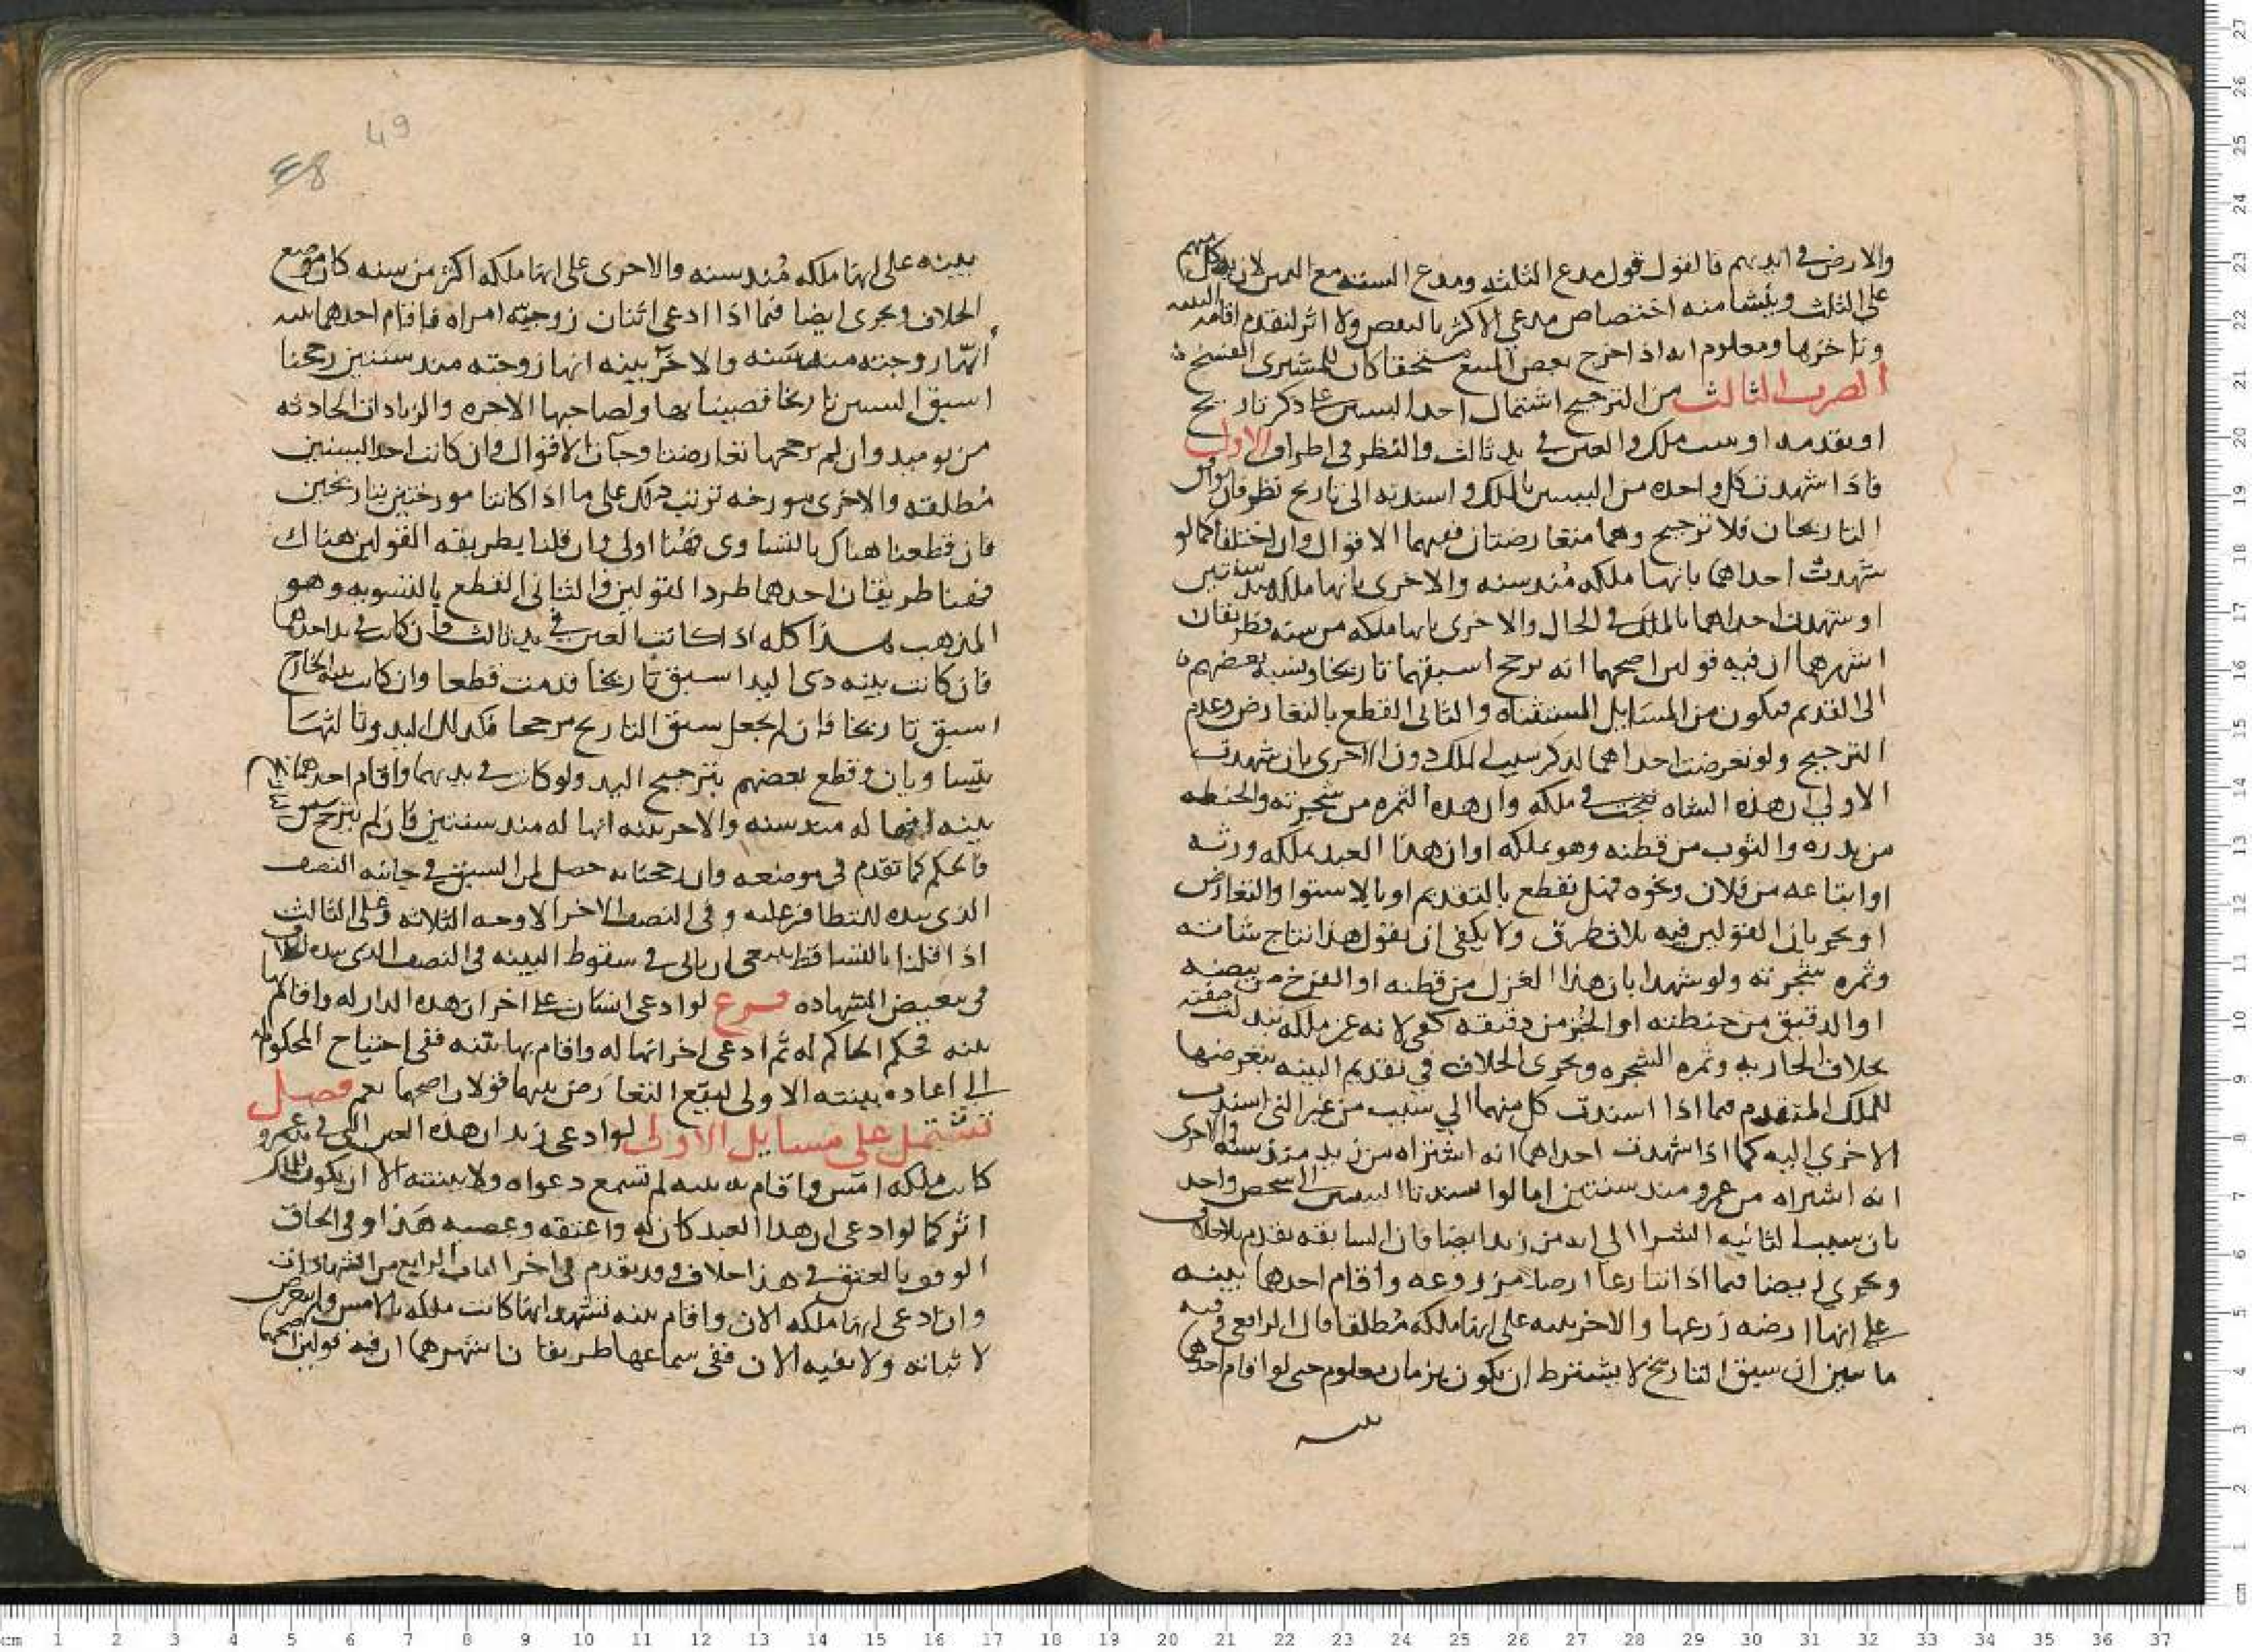 والارض في ايديهم فالقول قول مدعي الثلثه ومدعي السته مع اليمين لان يد كل منهم
على الثلث وينشا منه اختصاص مدعي الاكثر بالبعض ولا اثر لتقدم اقامه البينه
وتاخرها ومعلوم انه اذا خرج بعض المبيع مستحقا كان للمشتري الفسخ
الضرب الثالث من الترجيح اشتمال احدى البينتين على ذكر تاريخ
او تقدمه او سبب ملك والعين في يد ثالث والنظر في اطراف الاول
فاذا شهدت كل واحده من البينتين بالملك واسندته الى تاريخ نظر فان توافق
التاريخان فلا ترجيح وهما متعارضتان ففيهما الاقوال وان اختلفا كما لو
شهدت احداهما بانها ملكه مند سنه والاخرى بانها ملكه مند سنتين
او شهدت احداهما بالملك في الحال والاخرى بانها ملكه من سنه فطريقان
اشهرهما ان فيه قولين اصحهما انه يرجح اسبقهما تاريخا ونسبه بعضهم
الى القديم فيكون من المسايل المستثناه والثاني القطع بالتعارض وعدم
الترجيح ولو تعرضت احداهما لذكر سبب الملك دون الاخرى بان شهدت
الاولي ان هذه الشاه نتجت في ملكه وان هذه الثمره من شجرته والحنطه
من بدره والثوب من قطنه وهو ملكه او ان هذا العبد ملكه ورثه
او ابتاعه من فلان ونحوه فهل نقطع بالتقديم او بالاستوا والتعارض
او يجريان القولين فيه بلاث طرق ولا يكفي ان يقول هذا نتاج شاته
وثمره شجرته ولو شهدا بان هذا الغزل من قطنه او الفرخ من بيضه
او الدقيق من حنطته او الخبز من دقيقه كفى لانه عين ملكه تبدلت صفته
بخلاف الجاريه وثمره الشجره ويجرى الخلاف في تقديم البينه بتعرضها
للملك المتقدم فيما اذا اسندت كل منهما الي سبب من غير التي اسندت
الاخري اليه كما اذا شهدت احداهما انه اشتراه من زيد منذ سنه والاخرى
انه اشتراه من عمرو مند سنتين اما لو اسندتا البينتين الى شخص واحد
بان سبب الثانيه الشرا الي انه من زيد ايضا فان السابقه تقدم بلا خلاف
ويجري ايضا فيما اذا تنازعا ارضا مزروعه واقام احدهما بينه
على انها ارضه زرعها والاخر بينه على انها ملكه مطلقا قال الرافعي فيه
ما يبين ان سبق التاريخ لا يشترط ان يكون بزمان معلوم حتى لو اقام احدهما
بينه
49
بينه على انها ملكه مُند سنه والاخرى على انها ملكه اكثر من سنه كان موضع
الخلاف ويجرى ايضا فيما اذا ادعى اثنان زوجيّة امراه فاقام احدهما بينه
انّها زوجته مند سَنه والاخرُ بينه انها زوجته مند سنتين رجحنا
اسبق البينتين تاريخا قضينا بها ولصاحبها الاجره والزيادات الحادثه
من يوميد وان لم نرجحها تعارضتا وجات الاقوال وان كانت احد البينتين
مُطلقه والاخرى مورخه ترتب ذلك على ما اذا كانتا مورختين بتاريخين
فان قطعنا هناك بالتساوى فهُنا اولى وان قلنا بطريقه القولين هناك
ففنا طريقان احدهما طرد القولين والثاني القطع بالتسويه وهو
المذهب هذا كله اذا كانت العين في يد ثالث وان كانت في يد احدهما
فان كانت بينه ذى اليد اسبق تاريخا قدمت قطعا وان كانت بينه الخارج
اسبق تاريخا فان لم يجعل سبق التاريخ مرجحا فكذلك اليد وثالثهَا
يتساويان وقطع بعضهم بترجيح اليد ولو كانت في يديهما واقام احدهما
بينه انها له مند سنه والاخر بينه انها له مند سنتين فان لم يترجح
فالحكم كما تقدم في موضعه وان رجحنا به حصل لمن السبق في جانبه النصف
الذى بيده للتظافر عليه وفى النصف الاخر الاوجه الثلاثه وعلى الثالث
اذا قلنا بالتساقط في سقوط البينه في النصف الذى بيده
في تبعيض الشهاده فرع لو ادعى انسان على اخر ان هذه الدار له واقام بها
بينه فحكم الحاكم له ثم ادعى اخر انها له واقام بها بيّنه ففي احتياج المحكوم له
الى اعاده بينته الاولى ليقع التعارض بينهما قولان اصحهما نعم فصل
تشتمل على مسايل الاولى لو ادعى زيد ان هذه العين التي في يد عمرو
كانت ملكه امس واقام به بينه لم تسمع دعواه ولا بينته الا ان يكون للملك
اثر كما لو ادعى ان هذا العبد كان له واعتقه وغصبه هَذا وفي الحاق
الوقف بالعتق في هذا خلاف وقد تقدم في اخر الباب الرابع من الشهادات
وان ادعى انها ملكه الان واقام بينه تشهد انها كانت ملكه بالامس ولم تتعرض
لاثباته ولا نفيه الان ففي سماعها طريقان اشهرهما ان فيه قولين اصحهما